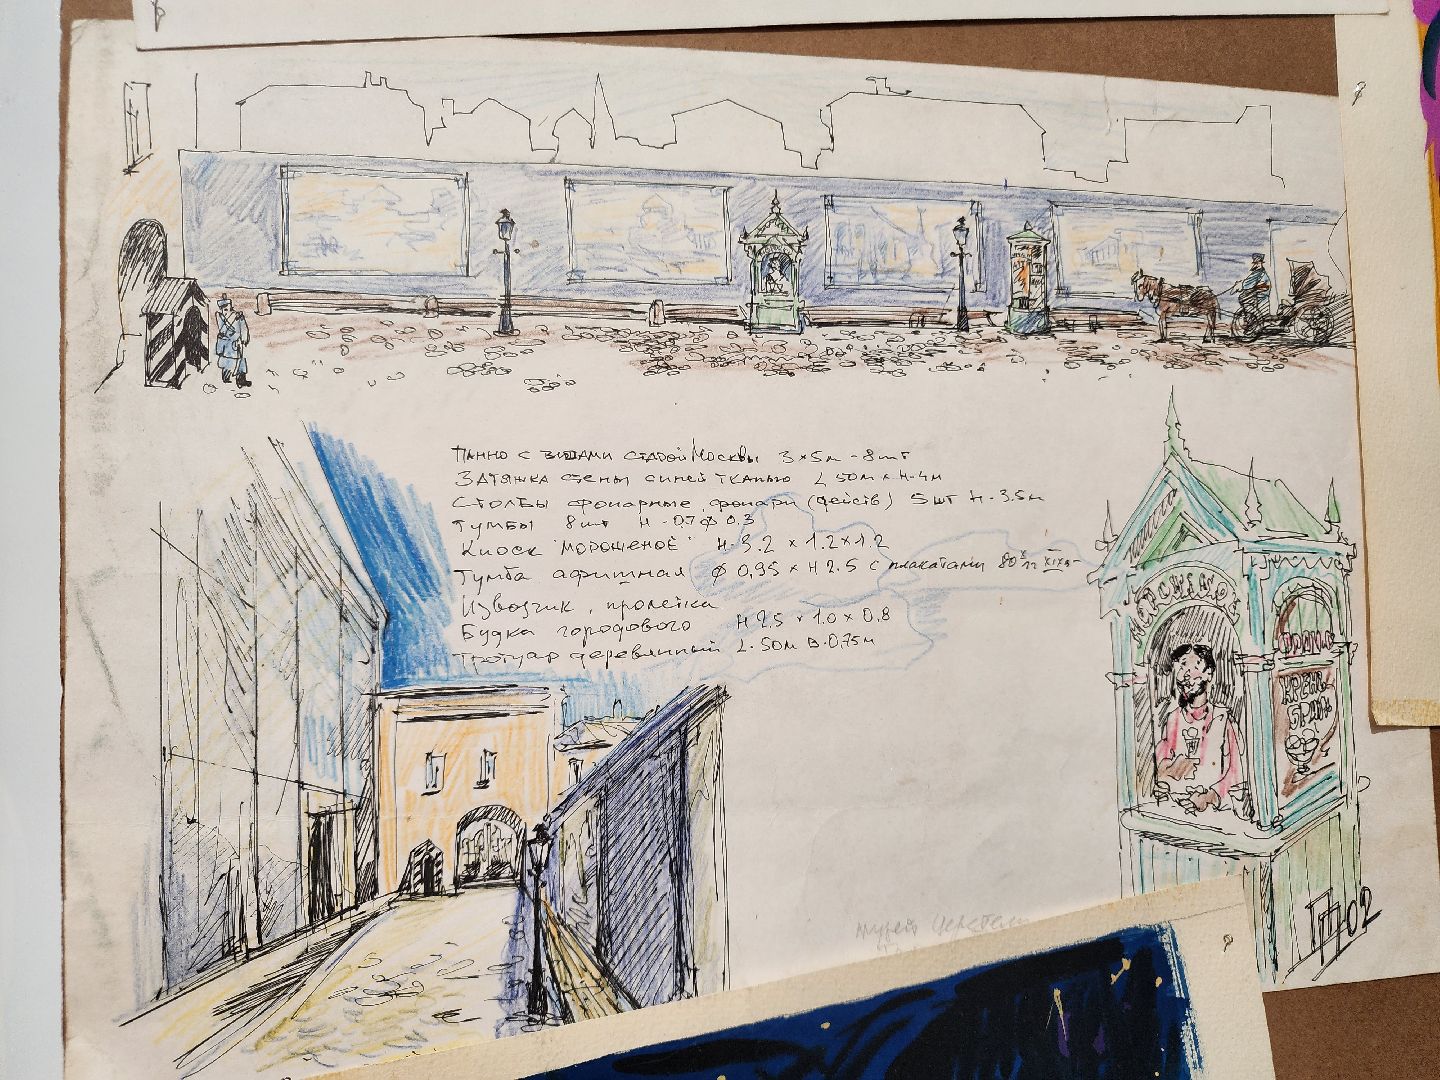 Панно с видами старой Москвы 3×5м - 8шт
Затяжка стены синей тканью L 50м × H-4м
Столбы фонарные, фонари (действ) 5шт H-3.5м
Тумбы 8шт H-0.7 ф 0.3
Киоск "мороженое" H-3.2 × 1.2×1.2
Тумба афишная ф 0,95 × H 2.5 с плакатами 80х гг XIXв-
Извозчик, пролетка
Будка городового H 2.5 × 1.0 × 0.8
Тротуар деревянный L-50м В-0,75м
МОРОЖЕНОЕ
КРЕМ-
БРЮЛ
музей Церетели
02